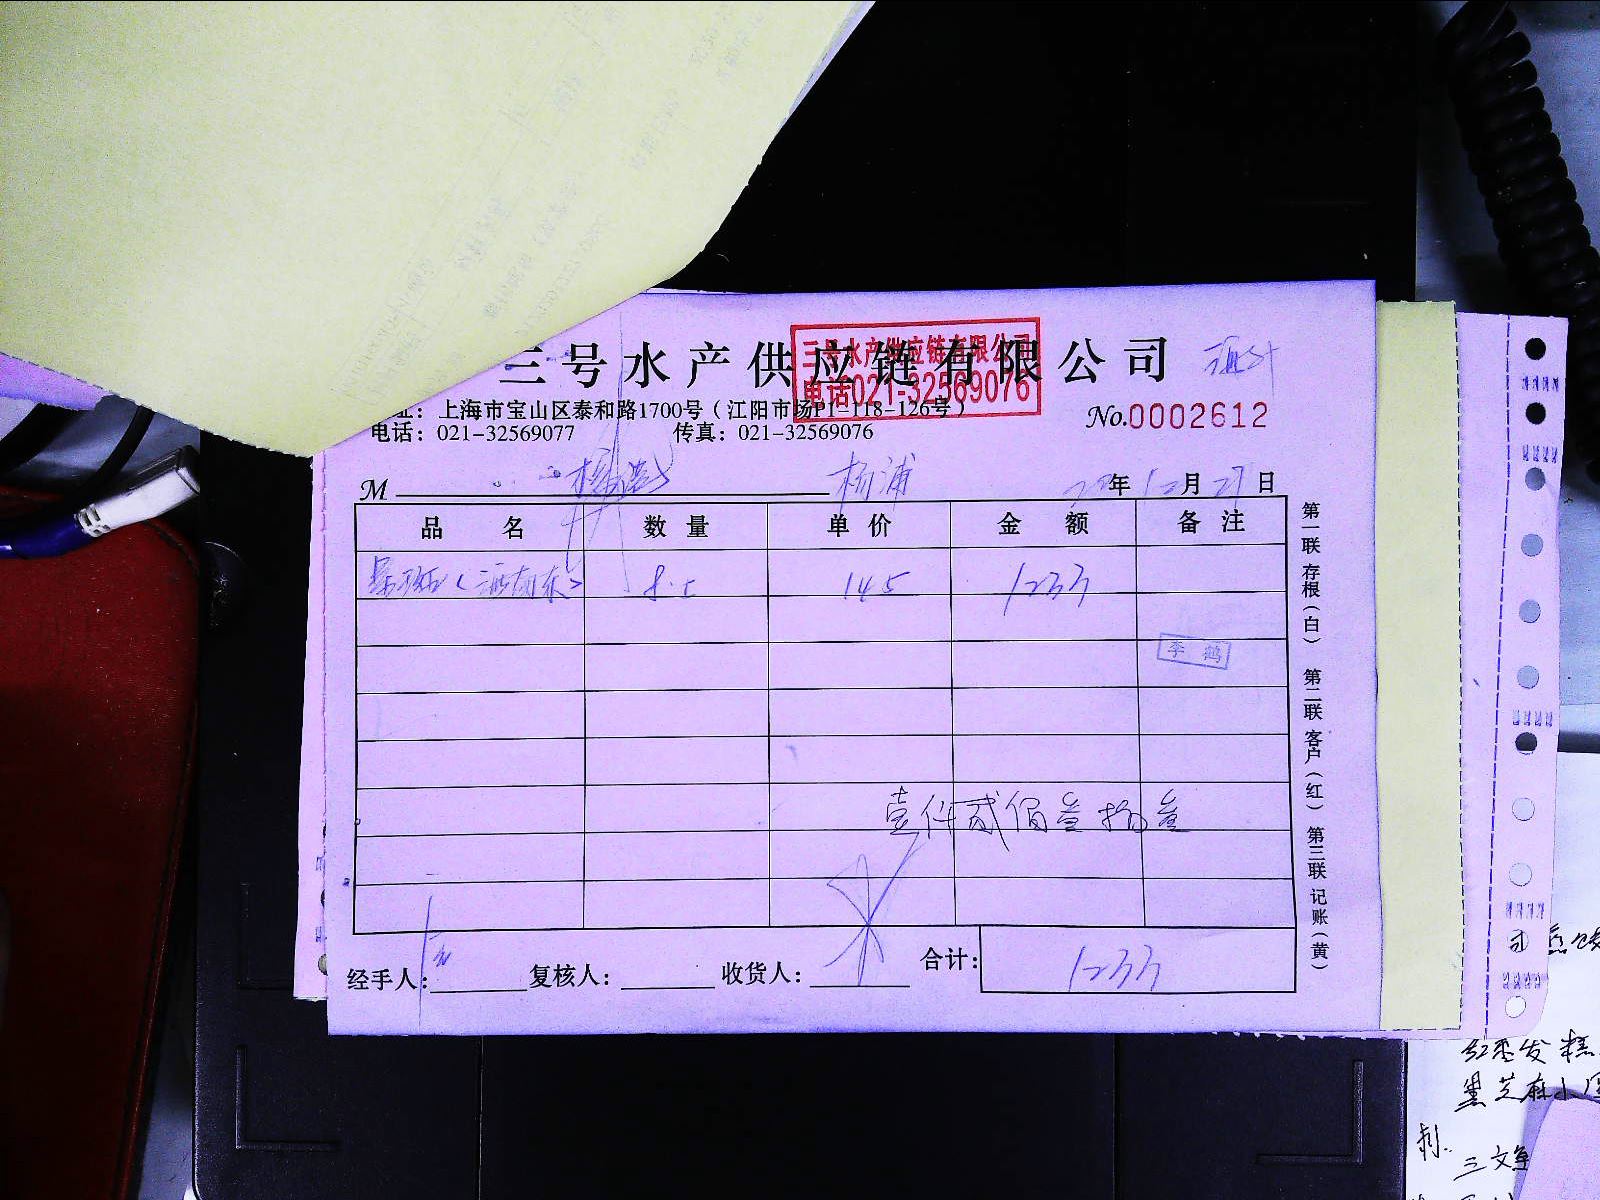 三号水产供应链有限公司
三号水产供应链有限公司
电话021-32569076
址：上海市宝山区泰和路1700号（江阳市场P1-118-126号）
No.0002612
电话：021-32569077 传真：021-32569076
M 杨浦 年12月27日
品名 数量 单价 金额 备注
8.5 145 1233
李鹤
壹仟贰佰叁拾叁
经手人： 复核人： 收货人： 合计： 1233
第一联 存根（白） 第二联 客户（红） 第三联 记账（黄）
红枣发糕
黑芝麻小